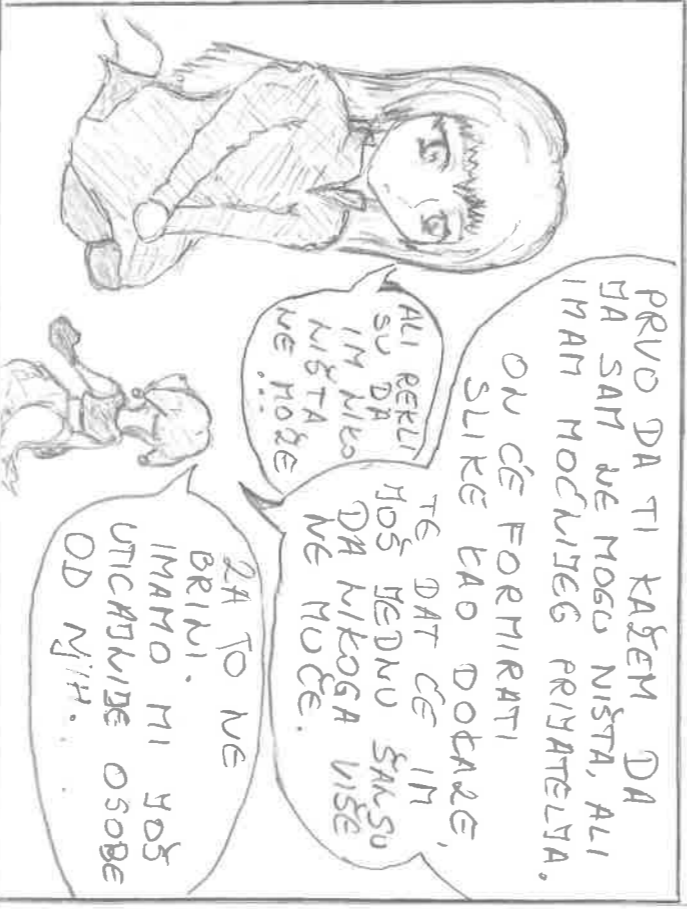 PRVO DA TI KAŽEM DA
JA SAM NE MOGU NIŠTA, ALI
IMAM MOĆNIJEG PRIJATELJA.
ON ĆE FORMIRATI
SLIKE KAO DOKAZE,
TE DAT ĆE IM
JOŠ JEDNU ŠANSU
DA NIKOGA VIŠE
NE MUČE.
ALI REKLI
SU DA
IM NIKO
NIŠTA
NE MOŽE
...
ZA TO NE
BRINI.
IMAMO MI JOŠ
UTICAJNIJE OSOBE
OD NJIH.